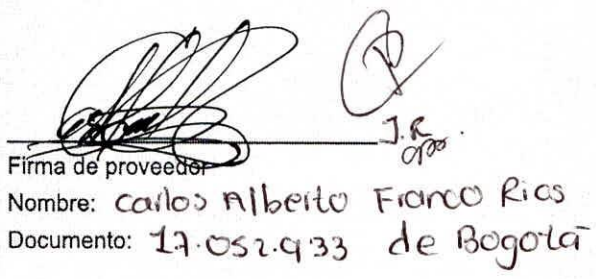 J.R
Firma de proveedor
Nombre: Carlos Alberto Franco Rios
Documento: 17.052.933 de Bogotá